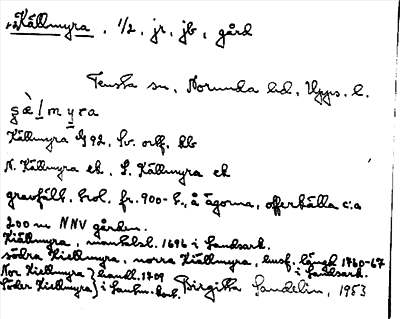 Källmyra, 1/2, jr, jb, gård
Tensta sn, Norunda hd, Upps. l.
Källmyra G 92, Sv. ortf., kb
N. Källmyra ek, S. Källmyra ek
gravfält, trol. fr. 900-t., å ägorna, offerkälla c:a
200 m NNV gården.
Kiällmyra, mantalsl. 1696 i Landsark.
södra Kiellmyra, norra Kiällmyra, husf. längd 1760-67
i Landsark.
Nor Kiellmyra } handl. 1709
Söder Kiellmyra } i Lantm.
Birgitta Sandelin, 1953